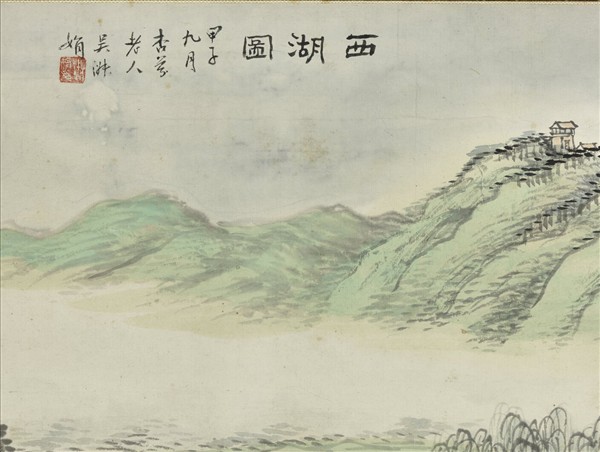 西湖圖
甲子
九月
杏芬
老人
吳淑
娟